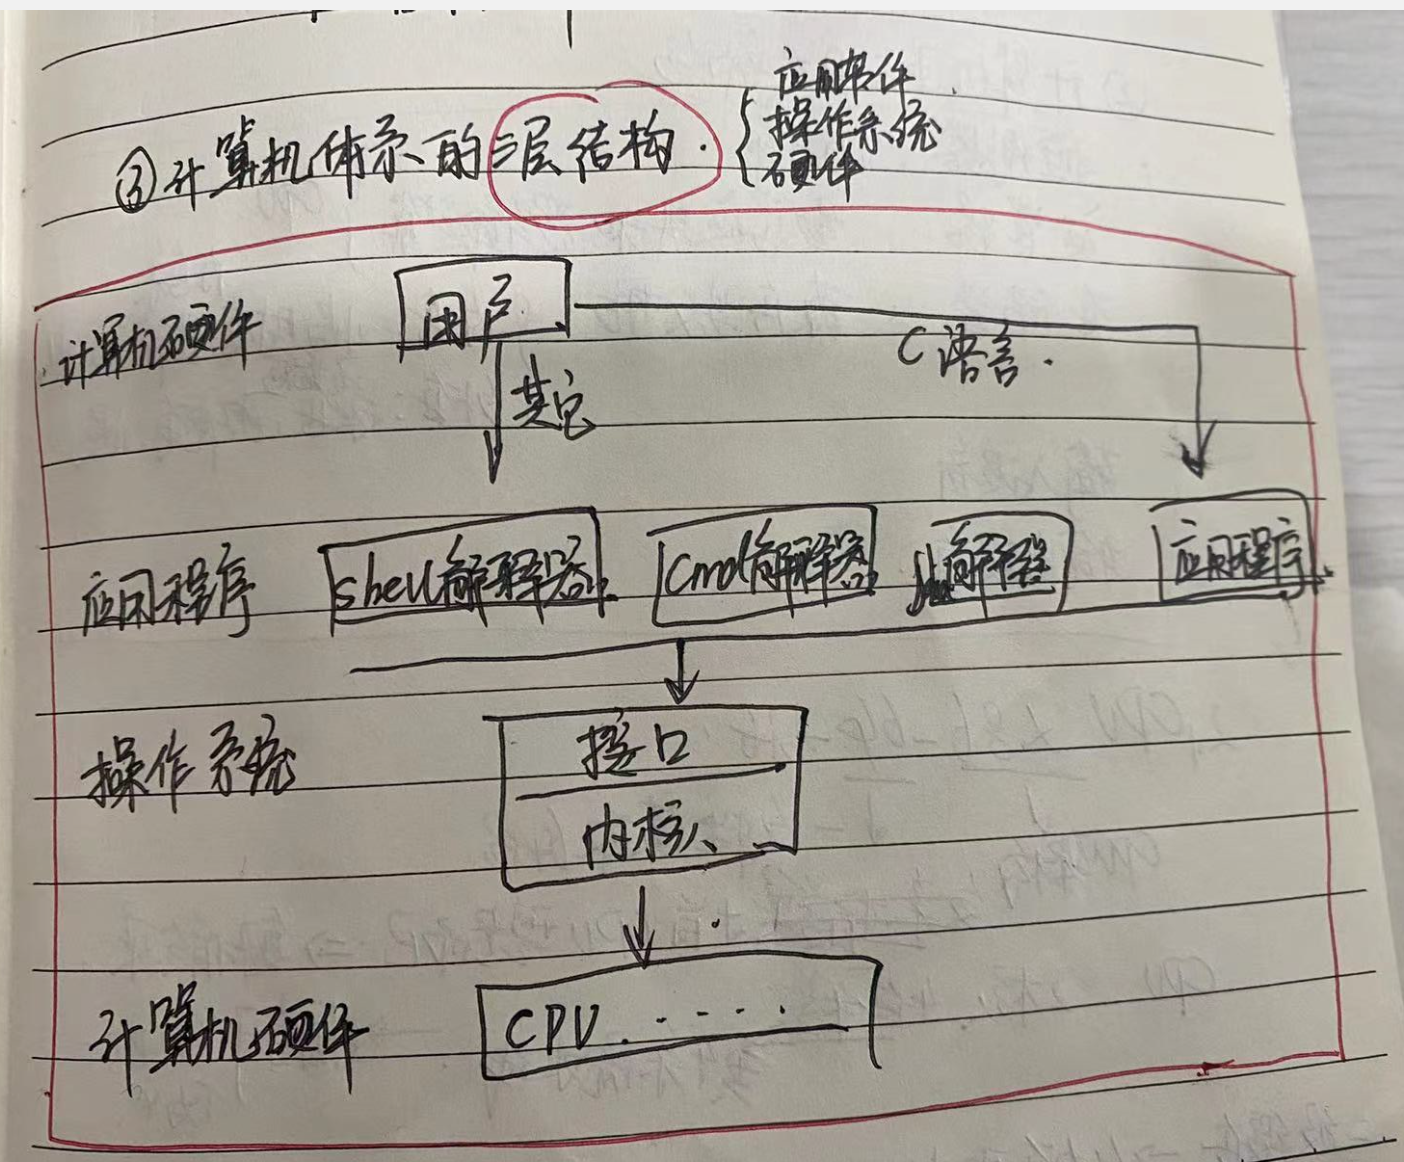 应用软件
③计算机体系的三层结构. 操作系统
硬件
计算机硬件 用户
C语言.
其它
应用程序 shell解释器 cmd解释器 解释器 应用程序
操作系统 接口
内核
计算机硬件 CPU.....